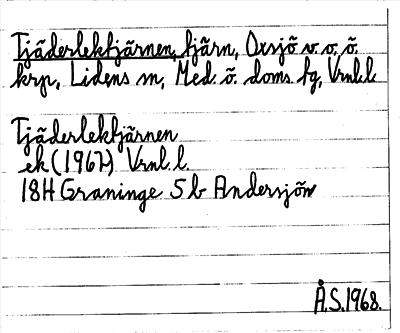 Tjäderlektjärnen, tjärn, Oxsjö v. o. ö.
krp, Lidens sn, Med. ö. doms. fg, Vrnl. l.
Tjäderlektjärnen
ek (1967) Vrnl. l.
18H Graninge 5b Andersjön
Å.S. 1968.